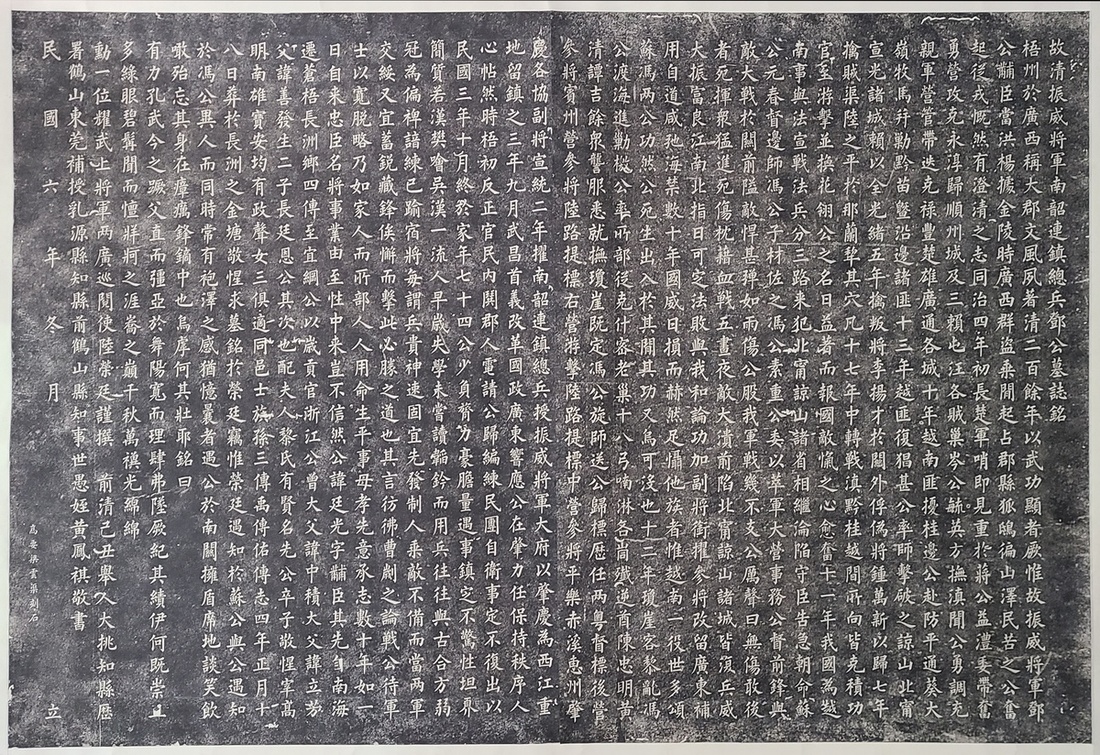 故清振威將軍南韶連鎮總兵鄧公墓誌銘
梧州於廣西稱大郡文風夙著清二百餘年以武功顯者厥惟故振威將軍鄧
公黼臣當洪楊據金陵時廣西群盜乘間起占郡縣狐鳴徧山澤民苦之公奮
起從戎慨然有澄清之志同治四年初長楚軍哨即見重於蔣公益澧委帶奮
勇營攻克永淳歸順州城及三賴屯汪各賊巢岑公毓英方撫滇聞公勇調充
親軍營管帶迭克祿豐楚雄廣通各城十年越南匪擾桂邊公赴防平通葵大
嶺牧馬幷勦黔苗曁沿邊諸匪十三年越匪復猖甚公率師擊破之諒山北甯
宣光諸城賴以全光緒五年擒叛將李揚才於關外俘僞將鍾萬新以歸七年
擒賊渠陸之平於那蘭犂其穴凡十七年中轉戰滇黔桂越間所向皆克積功
官至游擊並換花翎公之名日益著而報國敵愾之心愈奮十一年我國為越
南事與法宣戰法兵分三路來犯北甯諒山諸省相繼淪陷守臣告急朝命蘇
公元春督邊師馮公子材佐之馮公素重公委以萃軍大營事務公督前鋒與
敵大戰於關前隘敵悍甚彈如雨傷公股我軍戰幾不支公厲聲曰無傷敢後
者死揮衆猛進死傷枕藉血戰五晝夜敵大潰前陷北甯諒山諸城皆復兵威
大振富良江南北指日可定法敗與我和論功加副將銜擢參將改留廣東補
用自道咸弛海禁數十年國威日損而赫然足懾他族者惟越南一役世多頌
蘇馮兩公功然公死生出入於其間其功又烏可沒也十二年瓊崖客黎亂馮
公渡海進勦檄公率所部從克什密老巢十八弓喃淋各峒殲逆首陳忠明黃
清譚吉餘衆讋服悉就撫瓊崖既定馮公旋師送公歸標歷任兩粵督標後營
參將賓州營參將陸路提標右營游擊陸路提標中營參將平樂赤溪惠州肇
慶各協副將宣統二年擢南韶連鎮總兵授振威將軍大府以肇慶為西江重
地留鎮之三年九月武昌首義改革國政廣東響應公在肇力任保持秩序人
心帖然時梧初反正官民內鬨郡人電請公歸編練民團自衛事定不復出以
民國三年十月終於家年七十四公少負膂力豪膽量遇事鎮定不驚性坦易
簡質若漢樊噲吳漢一流人早歲失學未嘗讀韜鈐而用兵往往與古合方弱
冠為偏裨諳練已踰宿將每謂兵貴神速固宜先發制人乘敵不備而當兩軍
交綏又宜蓄銳藏鋒俟懈而擊此必勝之道也其言彷彿曹劌之論戰公待軍
士以寬脫略乃如家人而所部人人用命生平事母孝先意承志數十年如一
日自來忠臣名將事業由至性中來豈不信然公諱廷光字黼臣其先自南海
遷蒼梧長洲鄉四傳至宜綱公以歲貢官浙江公曾大父諱中積大父諱立芳
父諱善發生二子長廷恩公其次也配夫人黎氏有賢名先公卒子敬惺宰高
明南雄寶安均有政聲女三俱適同邑士族孫三傳禹傳佑傳志四年正月十
八日葬於長洲之金塘敬惺求墓銘於榮廷竊惟榮廷遇知於蘇公與公遇知
於馮公異人而同時常有袍澤之感猶憶曩者遇公於南關擁盾席地談笑飲
噉殆忘其身在瘴癘鋒鏑中也烏虖何其壯耶銘曰
有力孔武今之蹶父直而彊亞於舞陽寬而理肆弗陸厥紀其績伊何既崇且
多綠眼碧髯聞而憻牂牁之涯崙之巔千秋萬禩光緜緜
勳一位耀武上將軍兩廣巡閱使陸榮廷謹撰 前清己丑舉人大挑知縣歷
署鶴山東莞補授乳源縣知縣前鶴山縣知事世愚姪黃鳳祺敬書
高要梁雲渠刻石
民國六年冬月立